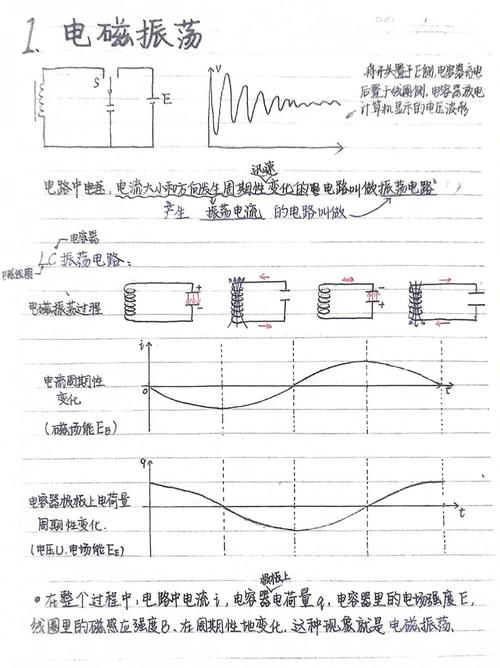 1. 电磁振荡
S
E
V
将开关置于E侧,电容器充电
后置于线圈侧,电容器放电
计算机显示的电压波形
迅速
电路中电荷,电流大小和方向发生周期性变化的电路叫做振荡电路
产生 振荡电流 的电路叫做
电容器
LC振荡电路:
电感线圈
电磁振荡过程
+
-
-
+
i
电流周期性
变化
(磁场能EB)
o
t
q
电容器极板上电荷量
周期性变化.
(电压U,电场能EE)
t
极板上
• 在整个过程中,电路中电流i,电容器电荷量q,电容器里的电场强度E,
线圈里的磁感应强度B、在周期性地变化.这种现象就是电磁振荡.